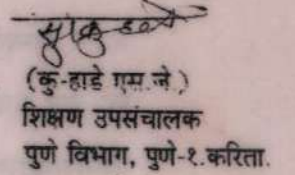 (कु-हाडे एम.जे.)
शिक्षण उपसंचालक
पुणे विभाग, पुणे-१.करिता.